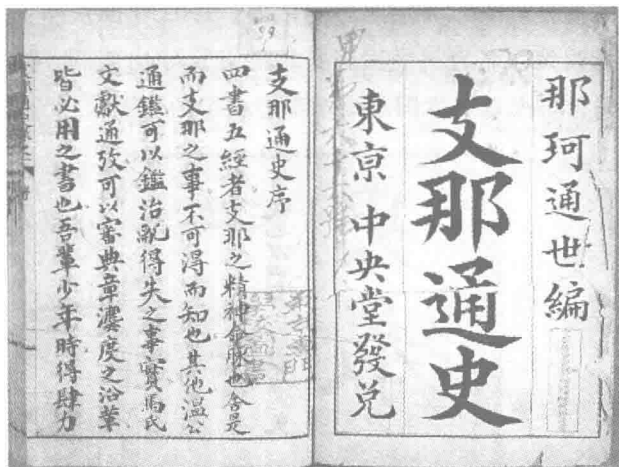 那珂通世編
支那通史
東京 中央堂發兌
支那通史序
四書五經者支那之精神命脈也舍是
而支那之事不可得而知也其他溫公
通鑑可以鑑治亂得失之事實馬氏
文獻通攷可以審典章灋度之沿革
皆必用之書也吾輩少年時得肆力